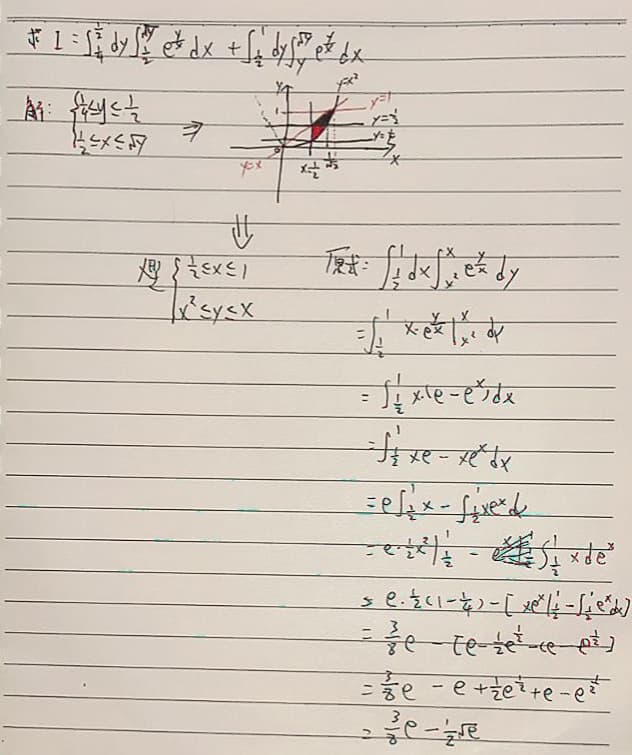 求 I = ∫_{1/4}^{1/2} dy ∫_{1/2}^{√y} e^{y/x} dx + ∫_{1/2}^{1} dy ∫_{y}^{√y} e^{y/x} dx
解: { 1/4 ≤ y ≤ 1/2
1/2 ≤ x ≤ √y ⇒
y
y=x²
1
y=1
y=1/2
y=1/4
0
x
y=x
x=1/2
⇓
则 { 1/2 ≤ x ≤ 1
x² ≤ y ≤ x
原式: ∫_{1/2}^{1} dx ∫_{x²}^{x} e^{y/x} dy
= ∫_{1/2}^{1} x·e^{y/x} |_{x²}^{x} dx
= ∫_{1/2}^{1} x·(e - e^x) dx
= ∫_{1/2}^{1} xe - xe^x dx
= e ∫_{1/2}^{1} x - ∫_{1/2}^{1} xe^x d
= e·1/2 x² |_{1/2}^{1} - ∫_{1/2}^{1} x de^x
= e·1/2 (1 - 1/4) - [ xe^x |_{1/2}^{1} - ∫_{1/2}^{1} e^x dx ]
= 3/8 e - [ e - 1/2 e^{1/2} - (e - e^{1/2} ]
= 3/8 e - e + 1/2 e^{1/2} + e - e^{1/2}
= 3/8 e - 1/2 √e